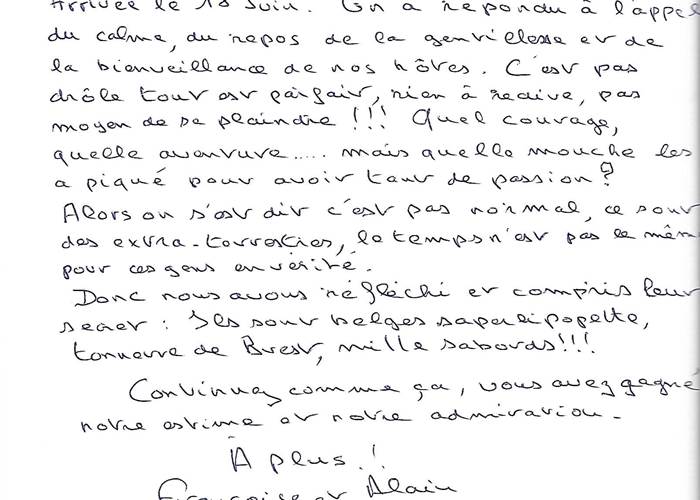 Arrivée le 18 Juin. On a répondu à l'appel
du calme, du repos de la gentillesse et de
la bienveillance de nos hôtes. C'est pas
drôle tout est parfait, rien à redire, pas
moyen de se plaindre !!! Quel courage,
quelle aventure..... mais quelle mouche les
a piqué pour avoir tant de passion ?
Alors on s'est dit c'est pas normal, ce sont
des extra-terrestres, le temps n'est pas le mêm
pour ces gens en vérité.
Donc nous avons réfléchi et compris leur
secret : Ils sont belges saperlipopette,
tonnerre de Brest, mille sabords!!!
Continuez comme ça, vous avez gagné
notre estime et notre admiration.
À plus.!
Françoise et Alain